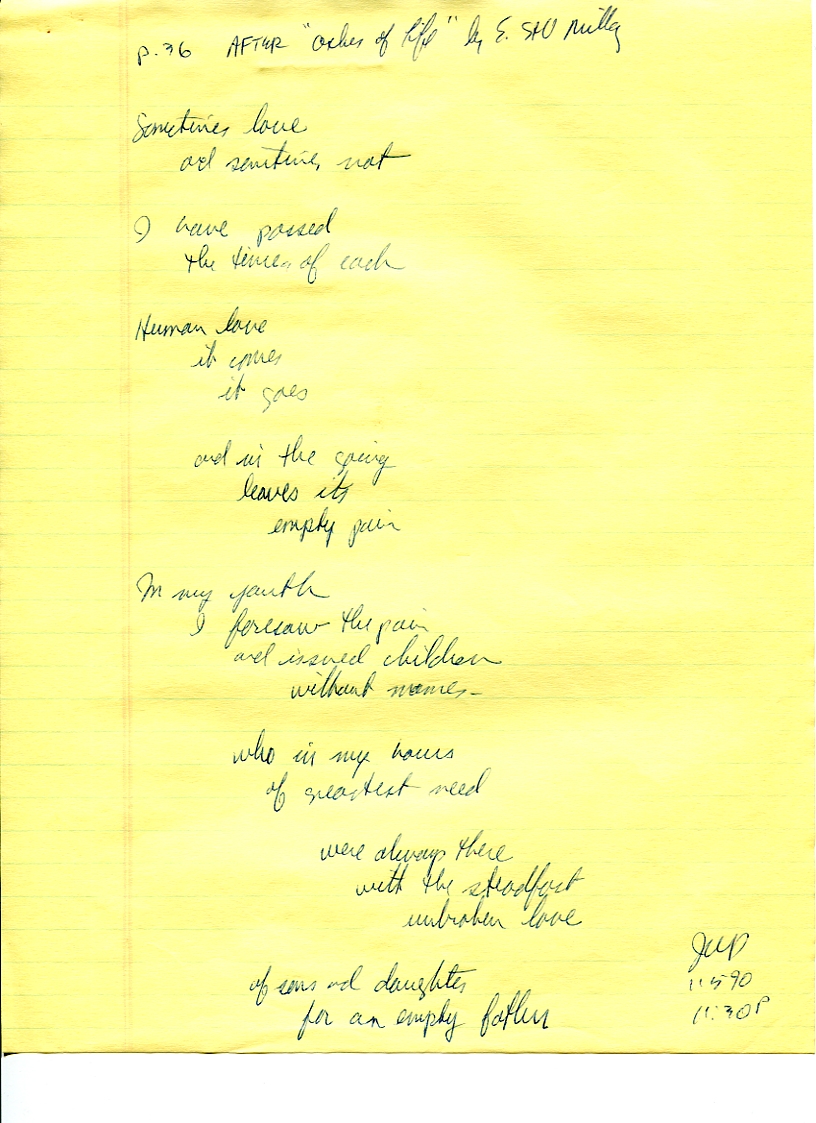 p. 36 AFTER "ashes of life" by E. St V Millay
Sometimes love
and sometimes not
I have passed
the times of each
Human love
it comes
it goes
and in the going
leaves its
empty pain
In my youth
I foresaw the pain
and issued children
without names -
who in my hours
of greatest need
were always there
with the steadfast
unbroken love
of sons and daughters
for an empty father
11 5 90
11:30 P